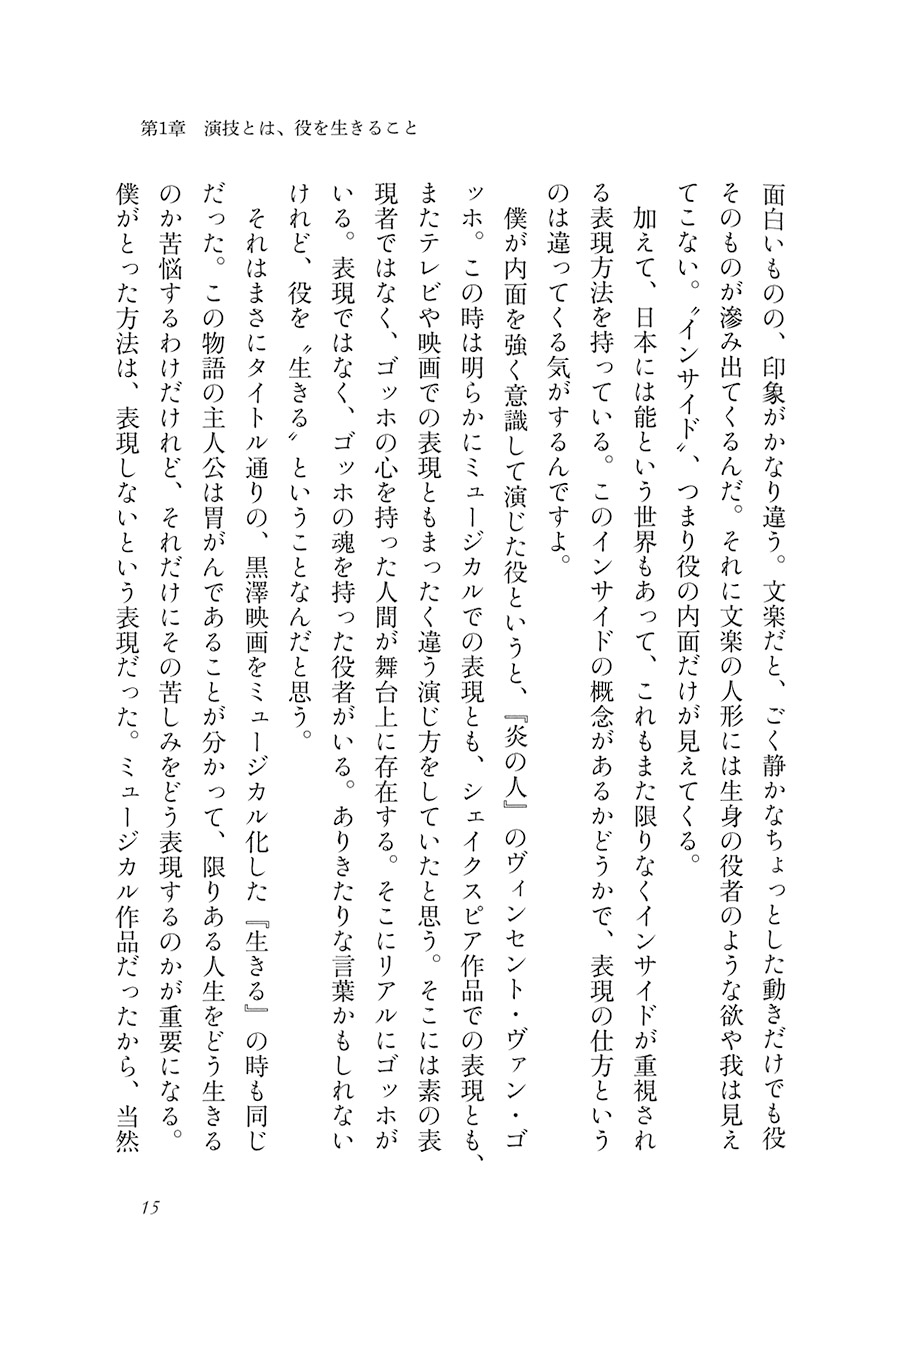 第1章　演技とは、役を生きること
面白いものの、印象がかなり違う。文楽だと、ごく静かなちょっとした動きだけでも役
そのものが滲み出てくるんだ。それに文楽の人形には生身の役者のような欲や我は見え
てこない。〝インサイド〟、つまり役の内面だけが見えてくる。
　加えて、日本には能という世界もあって、これもまた限りなくインサイドが重視され
る表現方法を持っている。このインサイドの概念があるかどうかで、表現の仕方という
のは違ってくる気がするんですよ。
　僕が内面を強く意識して演じた役というと、『炎の人』のヴィンセント・ヴァン・ゴ
ッホ。この時は明らかにミュージカルでの表現とも、シェイクスピア作品での表現とも、
またテレビや映画での表現ともまったく違う演じ方をしていたと思う。そこには素の表
現者ではなく、ゴッホの心を持った人間が舞台上に存在する。そこにリアルにゴッホが
いる。表現ではなく、ゴッホの魂を持った役者がいる。ありきたりな言葉かもしれない
けれど、役を〝生きる〟ということなんだと思う。
　それはまさにタイトル通りの、黒澤映画をミュージカル化した『生きる』の時も同じ
だった。この物語の主人公は胃がんであることが分かって、限りある人生をどう生きる
のか苦悩するわけだけれど、それだけにその苦しみをどう表現するのかが重要になる。
僕がとった方法は、表現しないという表現だった。ミュージカル作品だったから、当然
15